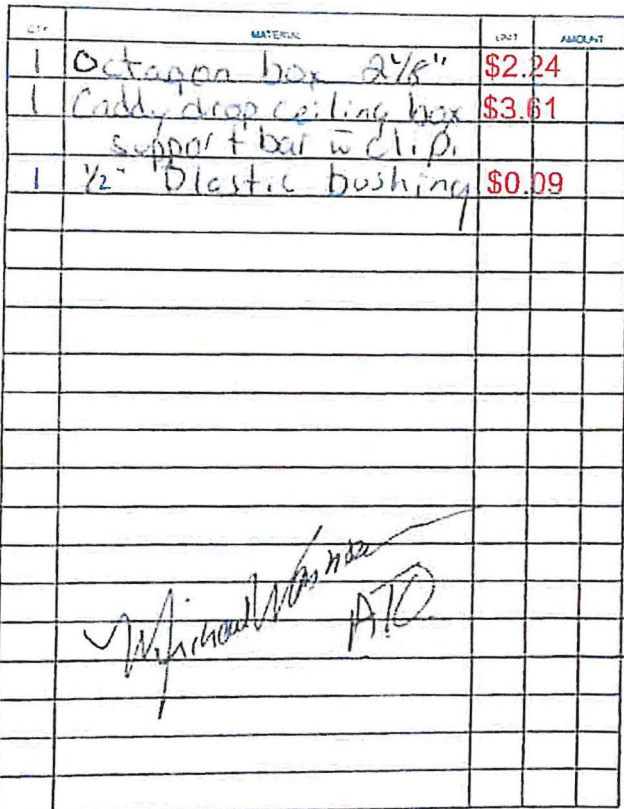 QTY. MATERIAL UNIT AMOUNT
1 Octagon box 2 1/8" $2.24
1 Caddy drop ceiling box $3.61
support bar w clip.
1 1/2" Plastic bushing $0.09
Michael
ATO